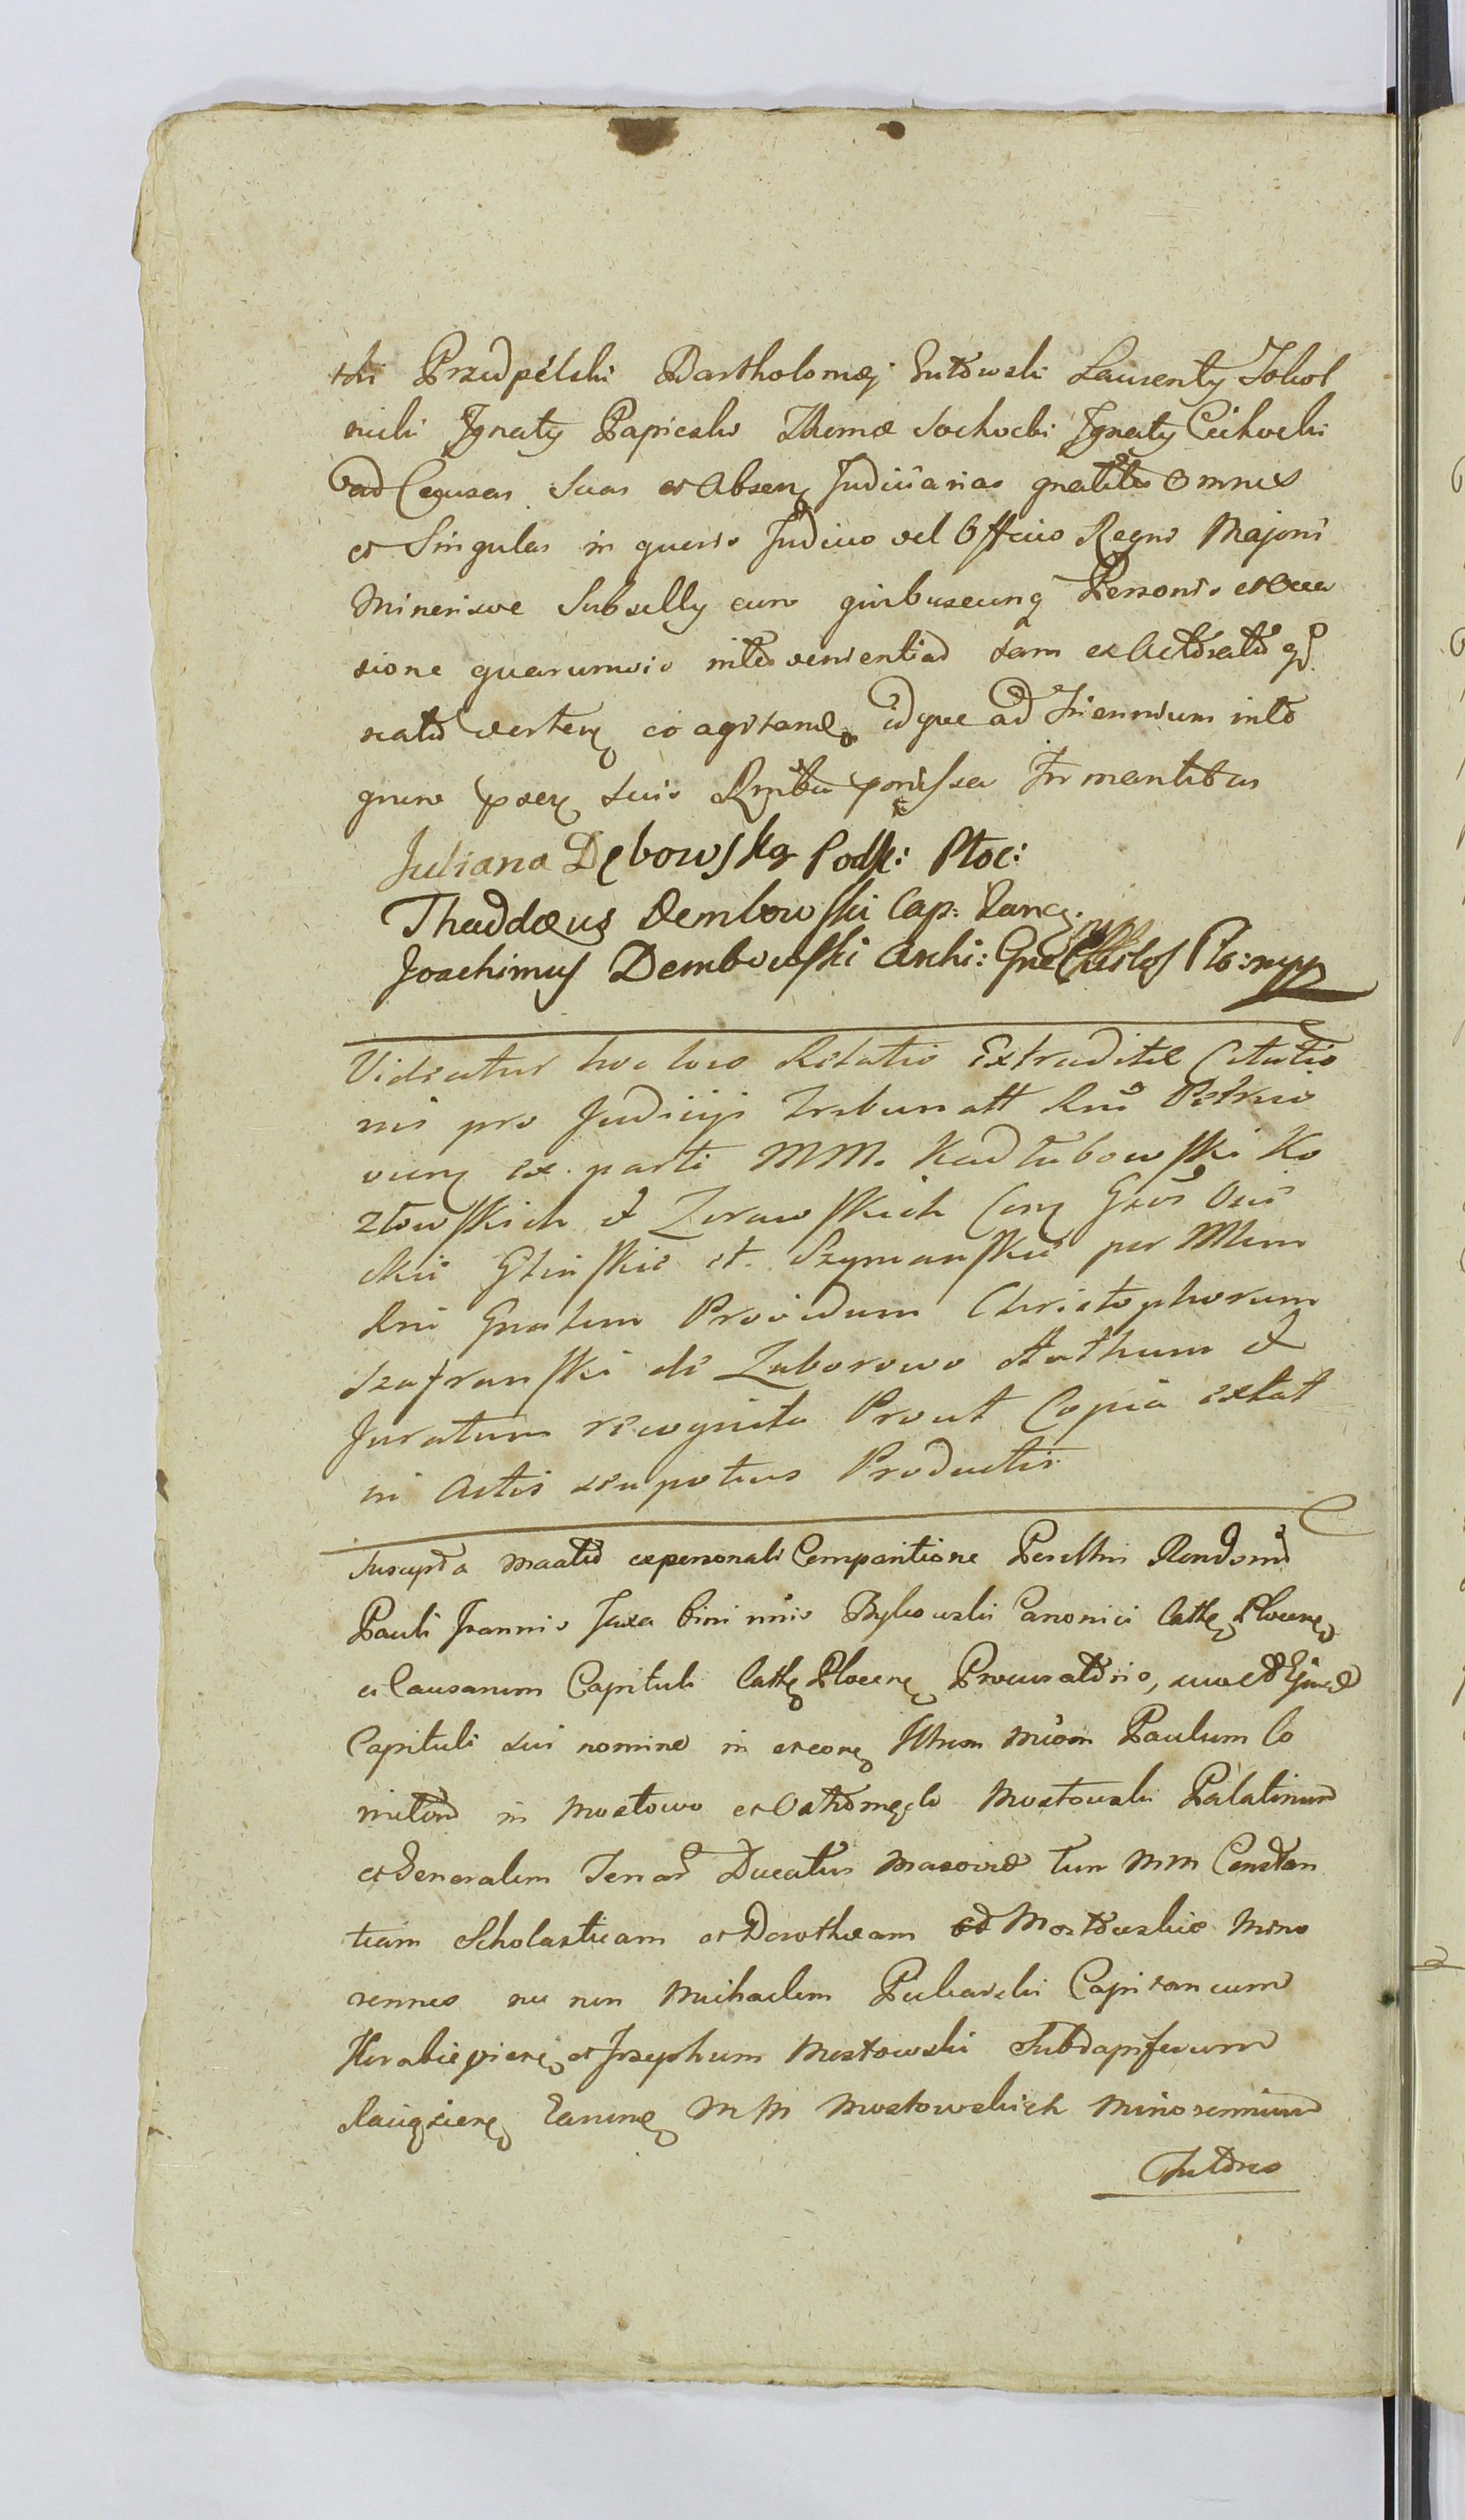 ski Przedpełski Bartholomęj Gutowski Laurenty Sokol
nicki Ignaty Papieski Thomæ Sochocki Ignaty Cichocki
ad Causas Suas et Absen Judiciarias gnaliter Omnes
et Singulas in quovis Judicio vel Officio Regni Majoris
Minorisve Subselly cum quibuscunq Personis et Occa
sione quarumvis intervenientiad tam ex Actoratu qd
reatu verten co agitand idque ad Triennium inte
grum psen suis Rmbu
Juliana Dębowska Podk: Płoc:
Thaddæus Dembowski Cap: Planc:
Joachimus Dembowski Archi: Gne Plo: mpp
Videatur hoc loco Relatio Extraditæ Citatio
nis pro Judicijs Tribunall Rni Petrico
vien ex parte MM. Kadłubowski Ko
złowskich & Zurawskich Con Gsos Osie
ckie Glinskie et. Szymanskie per Mlem
Rni Gnalem Providum Christophorum
Szafranski de Zaborowo Authum &
Juratum recognita Prout Copia extat
in Actis seu potius Productis
Suscepta maatio ex personali Comparitione Perillris Rendsmi
Pauli Joannis Jaxa bini nnis Bykowski Canonici Cathe Plocen
et Causarum Capituli Cathe Plocen Procuratoris, suo et Ejusd
Capituli sui nomine in et con Illrem Mcum Paulum Co
mitem in Mostowo et Ostromęcko Mostowski Palatinum
et Generalem Terrar Ducatus Masoviæ tum MM Constan
tiam Scholasticam et Dorotheam de Mostowskie Mino
rennes nec non Michaelem Piekarski Capitaneum
Hrabiegieren et Josephum Mostowski Subdapiferum
Raciążien Earund MM Mostowskich Minorennium
Tutores